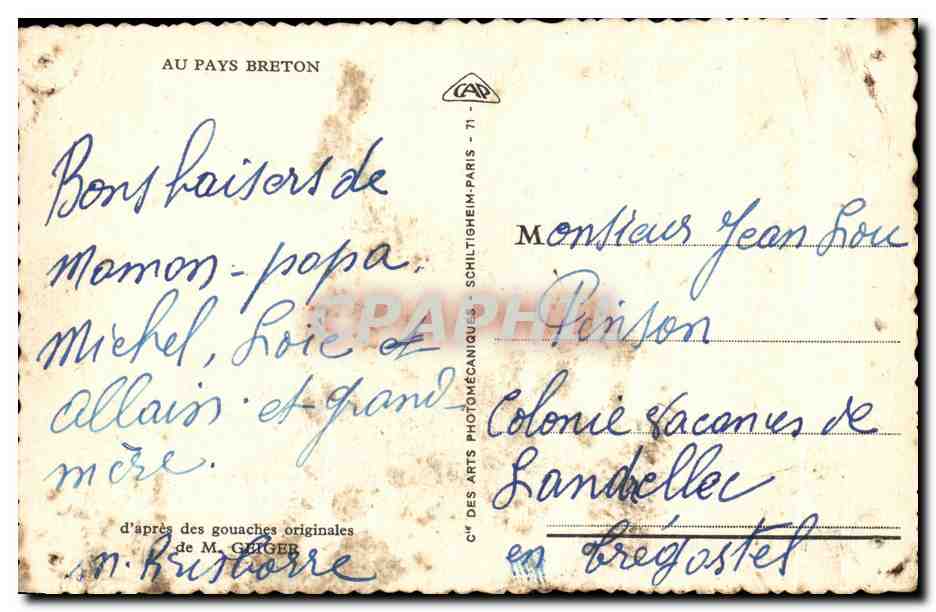 AU PAYS BRETON
CAP
Bons baisers de
Maman - papa.
Michel, Loïc et
Allain. et grand-
mère.
d'après des gouaches originales
de M. GEIGER
Cie DES ARTS PHOTOMÉCANIQUES - SCHILTIGHEIM-PARIS - 71 -
Monsieur Jean Lou
Pinson
Colonie Vacances de
Landrellec
en Trégastel
CPARHII